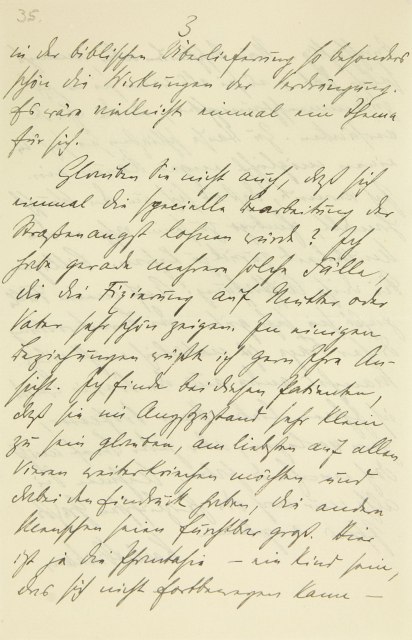 35.
3
in der biblischen Überlieferung so besonders
schön die Wirkungen der Verdrängung.
Es wäre vielleicht einmal ein Thema
für sich.
Glauben Sie nicht auch, daß sich
einmal die specielle Bearbeitung der
Straßenangst lohnen würde? Ich
habe gerade mehrere solche Fälle,
die die Fixierung auf Mutter oder
Vater sehr schön zeigen. In einigen
Beziehungen wüßte ich gern Ihre An-
sicht. Ich finde bei diesen Patienten,
daß sie im Angstzustand sehr klein
zu sein glauben, am liebsten auf allen
Vieren weiterkriechen möchten und
dabei den Eindruck haben, die andern
Menschen seien furchtbar groß. Hier
ist ja die Phantasie — ein Kind sein,
das sich nicht fortbewegen kann —